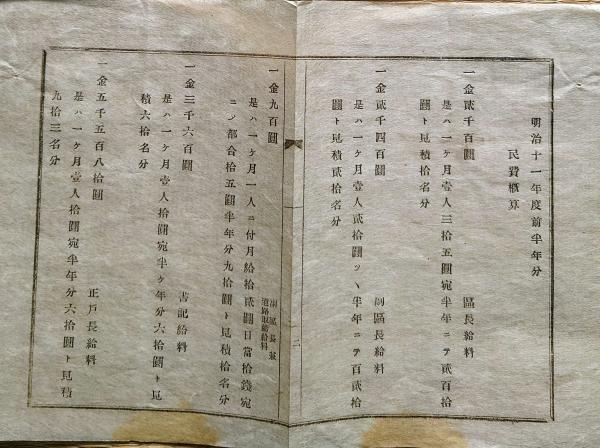 明治十一年度前半年分
民費概算
一金貳千百圓 區長給料
是ハ一ケ月壹人三拾五圓宛半年ニテ貳百拾
圓ト見積拾名分
一金貳千四百圓 副區長給料
是ハ一ケ月壹人貳拾圓ツヽ半年ニテ百貳拾
圓ト見積貳拾名分
二
一金九百圓 副區長兼道路取締給料
是ハ一ケ月一人ニ付月給拾貳圓日當拾錢宛
ニシ都合拾五圓半年分九拾圓ト見積拾名分
一金三千六百圓 書記給料
是ハ一ケ月壹人拾圓宛半ケ年分六拾圓ト見
積六拾名分
一金五千五百八拾圓 正戸長給料
是ハ一ケ月壹人拾圓宛半年分六拾圓ト見積
九拾三名分